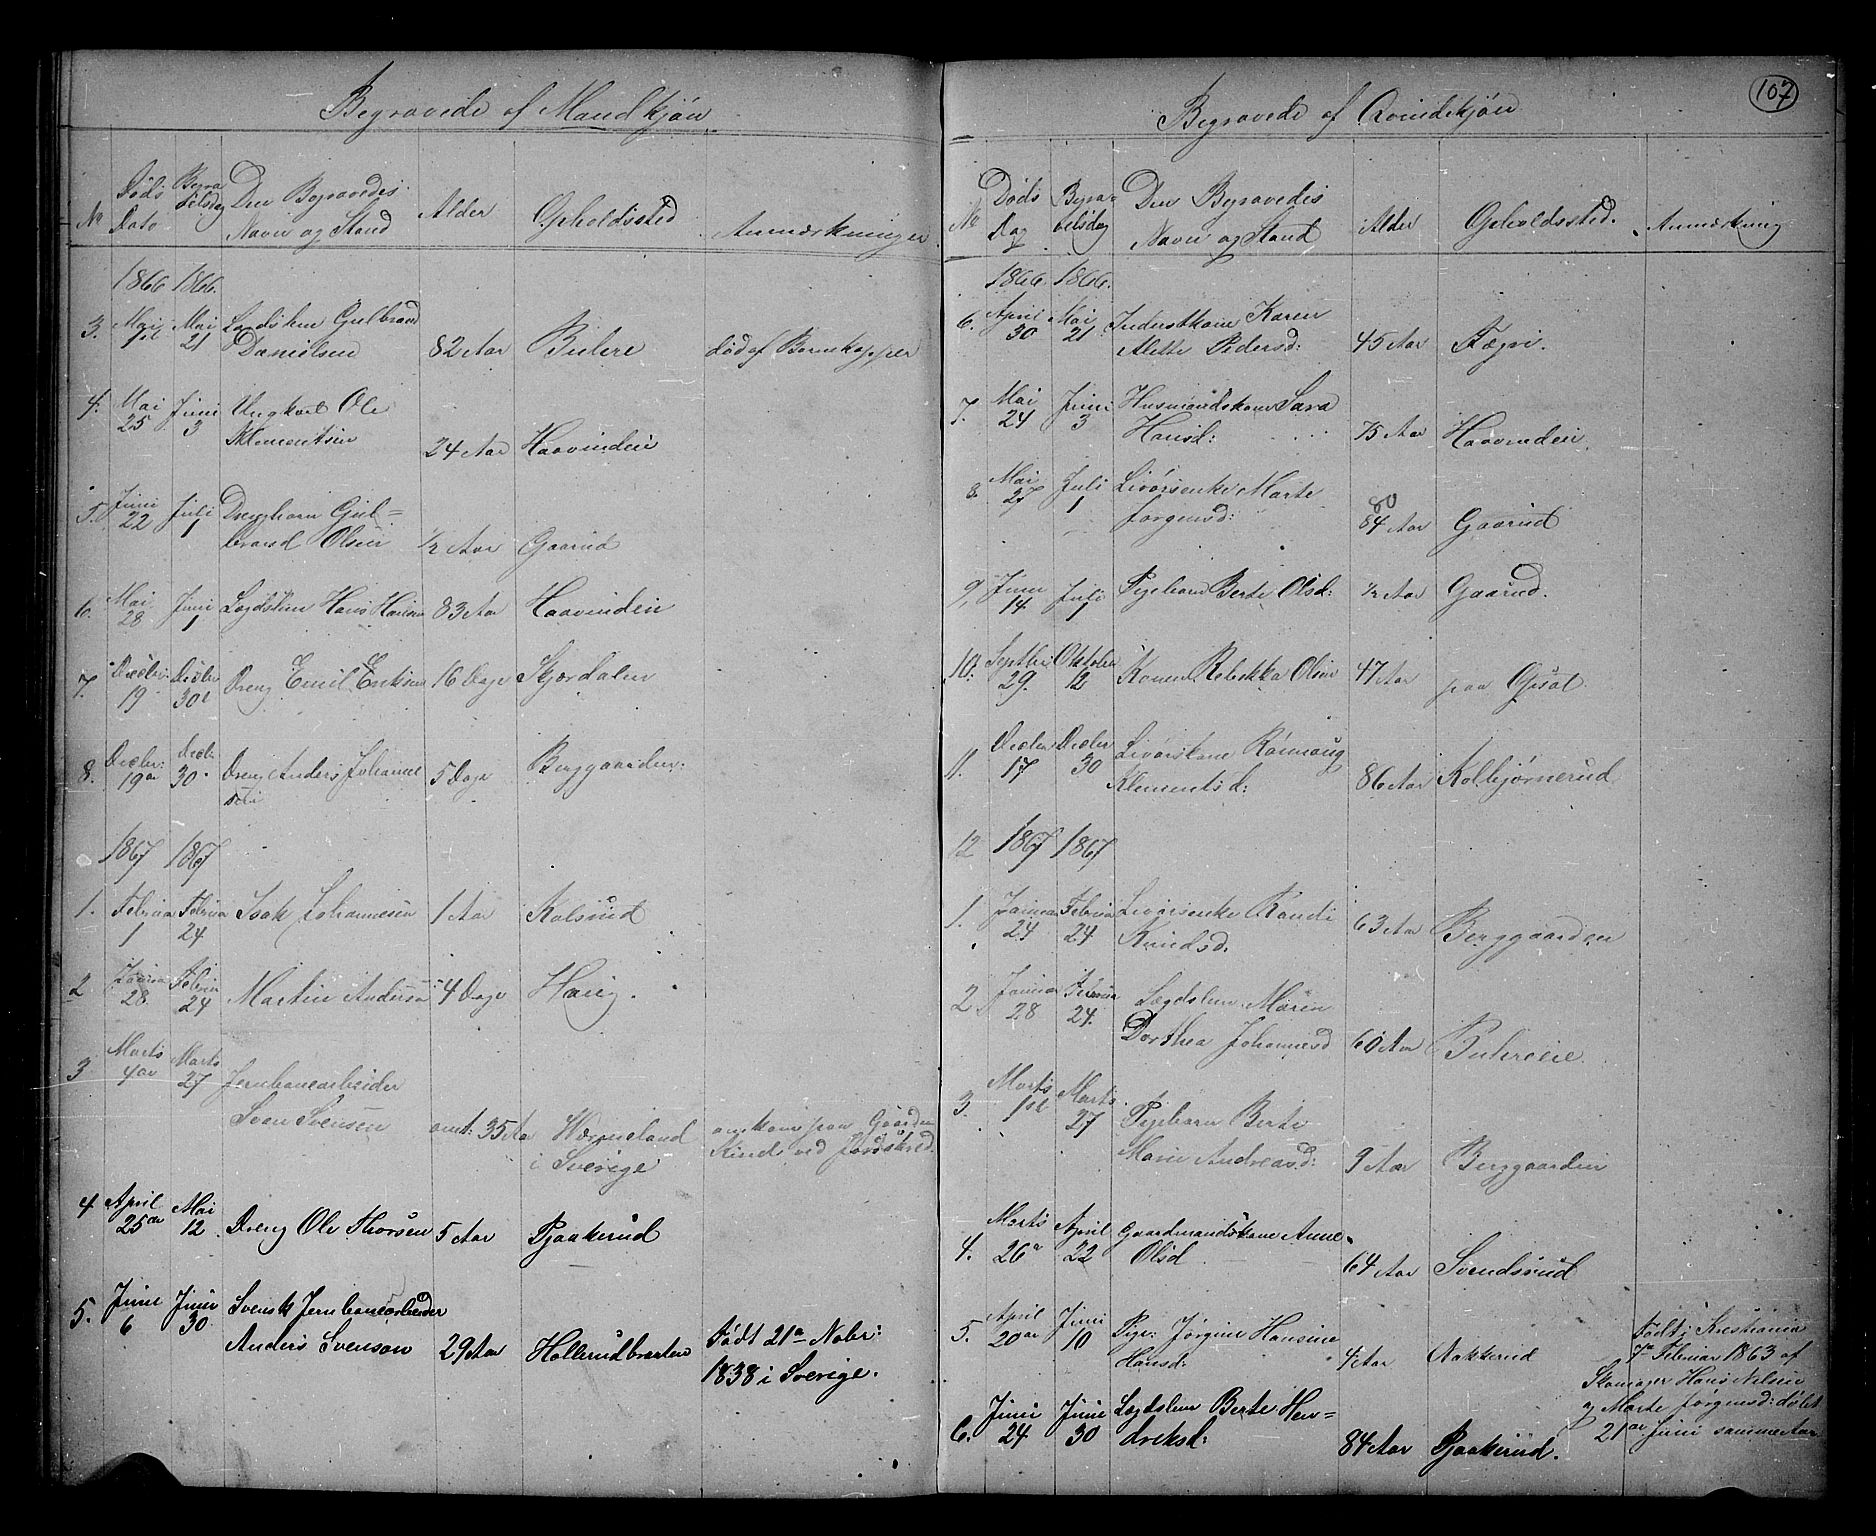 107
Begravede af Mandkjøn
No
Døds Dato
Begravelsdag
Den Begravedes Navn og Stand
Alder
Opholdssted
Anmærkninger
1866 1866.
3. Mai 1st Mai 21 Lægdslem Gulbrand
Danielsen 82 Aar Buhre død af Barnekopper
4. Mai 25 Juni 3 Ungkarl Ole
Klementsen 24 Aar Haavindeie
5. Juni 22 Juli 1 Drengbarn Gul=
brand Olsen 1/2 Aar Gaarud
6. Mai 28 Juni 1 Lægdslem Hans Hansen 83 Aar Haavindeie
7. Decbr: 19 Decbr 30t Dreng Emil Eriksen 16 Dage Skjærdalen
8. Decbr: 19de Decbr: 30 Dreng Anders Johanne
sen 5 Dage Berggaarden:
1867 1867
1. Februar 1 Februar 24 Isak Johannesen 1 Aar Kolsrud
2 Januar 28. Februar 24 Martin Andersen 4 Dage Haug.
3 Marts 4de Marts 27 Jernbanearbeider
Sven Svensen omt. 35 Aar Wærmeland omkom paa Gaarden
i Sverige ved Jordskred.
4 April 25de Mai 12 Dreng Ole Thorsen 5 Aar Pjaakerud
5. Juni 6 Juni 30 Svensk Jernbanearbeider
Anders Svenson 29 Aar Hollerudbraaten Født 21de Nobr:
1838 i Sverige.
Begravede af Qvindekjøn
No
Døds Dag
Begravelsdag
Den Begravedes Navn og Stand
Alder
Opholdssted.
Anmærkning
1866. 1866.
6. April 30 Mai 21. Inderstkone Karen
Alette Pedersd: 45 Aar Fægri.
7. Mai 24 Juni 3 Husmandskone Sara
Hansd: 75 Aar Haavindeie
8. Mai 27 Juli 1 Livørsenke Marte
Jørgensd: 80
84 Aar Gaarud
9, Juni 14 Juli 1 Pigebarn Berte Olsd: 1/2 Aar Gaarud.
10. Septbr 29. Oktober 12 Konen Rebekka Olsen 47 Aar paa Opsal
11. Decbr 17 Decbr 30 Livørskone Rønnaug
Klementsd: 86 Aar Kolbjørnerud
12 1867 1867
1. Januar 24 Februar 24 Livørsenke Randi
Knudsd. 63 Aar Berggaarden
2 Januar 28 Februar 24. Lægdslem Maren
Dorthea Johannesd 60 Aar Buhreeie
3. Marts 1st Marts 27 Pigebarn Berte
Marie Andreasd: 9 Aar Berggaarden
4. Marts 26de April 22 Gaardmandskone Anne
Olsd 64 Aar Svendsrud
5. April 20de Juni 10 Pige: Jørgine Hansine
Hansd: 4 Aar Nakkerud
Født i Kristiania
7de Februar 1863 af
Skomager Hans Nilsen
og Marte Jørgensd: døbt
21de Juni samme Aar
6. Juni 24 Juni 30 Lægdslem Berte Hen=
driksd: 84 Aar Pjaakerud.